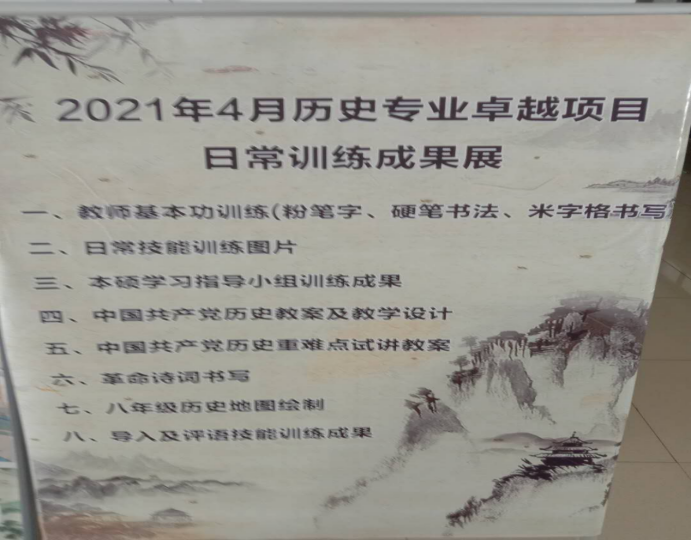 2021年4月历史专业卓越项目
日常训练成果展
一、教师基本功训练(粉笔字、硬笔书法、米字格书写
二、日常技能训练图片
三、本硕学习指导小组训练成果
四、中国共产党历史教案及教学设计
五、中国共产党历史重难点试讲教案
六、革命诗词书写
七、八年级历史地图绘制
八、导入及评语技能训练成果